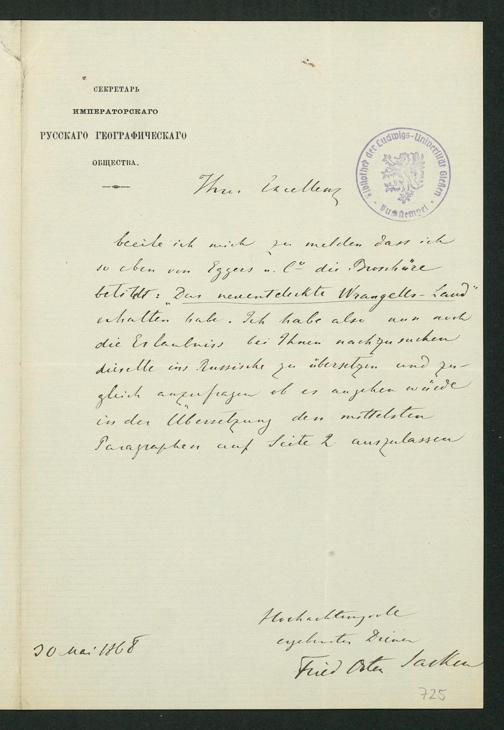 СЕКРЕТАРЬ
ИМПЕРАТОРСКАГО
РУССКАГО ГЕОГРАФИЧЕСКАГО
ОБЩЕСТВА.
Bibliothek der Ludwigs-Universität Gießen
Ihrer Excellenz
beeile ich mich zu melden dass ich
so eben von Eggers u. Cº die Broschüre
betitelt: "Das neuentdeckte Wrangells-Land"
erhalten habe. Ich habe also nun noch
die Erlaubniss bei Ihnen nachzusuchen
dieselbe ins Russische zu übersetzen und zu-
gleich anzufragen ob es angehen würde
in der Übersetzung den mittelsten
Paragraphen auf Seite 2 auszulassen
Hochachtungsvoll
ergebenster Diener
Fried Osten Sacken
30 Mai 1868
725